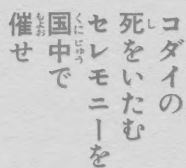 コダイの
死をいたむ
セレモニーを
国中で
催せ